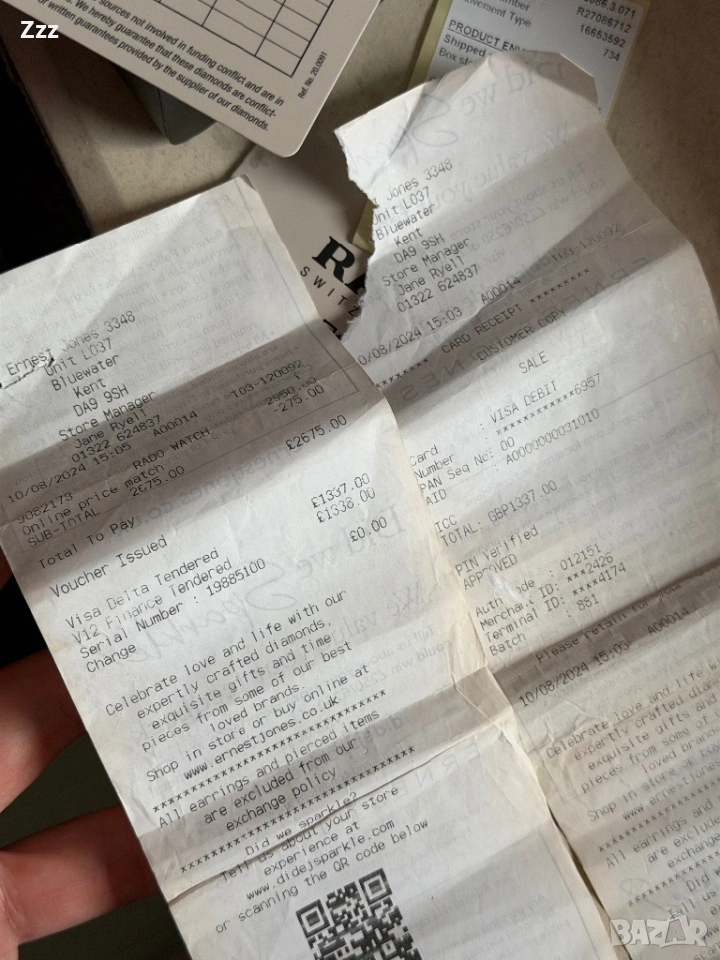 Zzz
sources not involved in funding conflict and are in
We hereby guarantee that these diamonds are conflict-
or written guarantees provided by the supplier of our diamonds.
Ref. No. 20.0091
3.071
R27086712
Movement Type
16653592
734
Shipped
Ernest Jones 3348
Unit L037
Bluewater
Kent
DA9 9SH
Store Manager
Jane Ryell
01322 624837
10/08/2024 15:05 A00014 T03-120092
9082173 RADO WATCH 2950.00
Online price match -275.00
SUB-TOTAL 2675.00
Total To Pay £2675.00
Voucher Issued
Visa Delta Tendered £1337.00
V12 Finance Tendered £1338.00
Serial Number : 19885100
Change £0.00
Celebrate love and life with our
expertly crafted diamonds,
exquisite gifts and time
pieces from some of our best
loved brands.
Shop in store or buy online at
www.ernestjones.co.uk
********************************
All earrings and pierced items
are excluded from our
exchange policy
********************************
Did we sparkle?
Tell us about your store
experience at
www.didejsparkle.com
or scanning the QR code below
RA
SWITZ
Jones 3348
Unit L037
Bluewater
Kent
DA9 9SH
Store Manager
Jane Ryell
01322 624837
10/08/2024 15:03 A00014 T03-120092
******** CARD RECEIPT *********
CUSTOMER COPY
SALE
Card : VISA DEBIT
Number : ************6957
PAN Seq No: 00
AID : A0000000031010
ICC
TOTAL: GBP1337.00
PIN Verified
APPROVED
Auth Code : 012151
Merchant ID: ***2426
Terminal ID: ****4174
Batch : 851
Please retain for your
10/08/2024 15:03 A00014
Celebrate love and life
expertly crafted
exquisite gifts and
pieces from some of
loved
Shop in store or
www.ernestjones
All earrings and
are excluded
exchange
Did
BAZAR